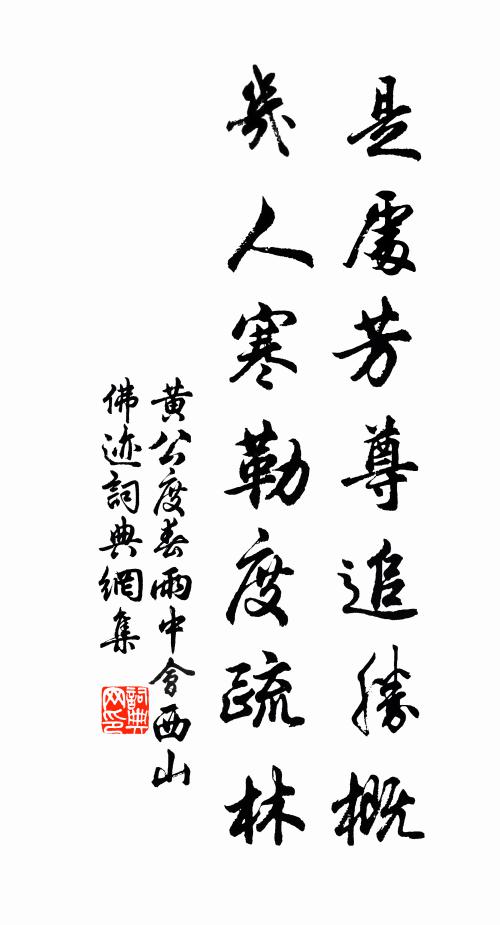 是處芳尊追勝概
幾人寒勒度疏林
黃公度春雨中會西山
佛迹詞典網集
詞典网印